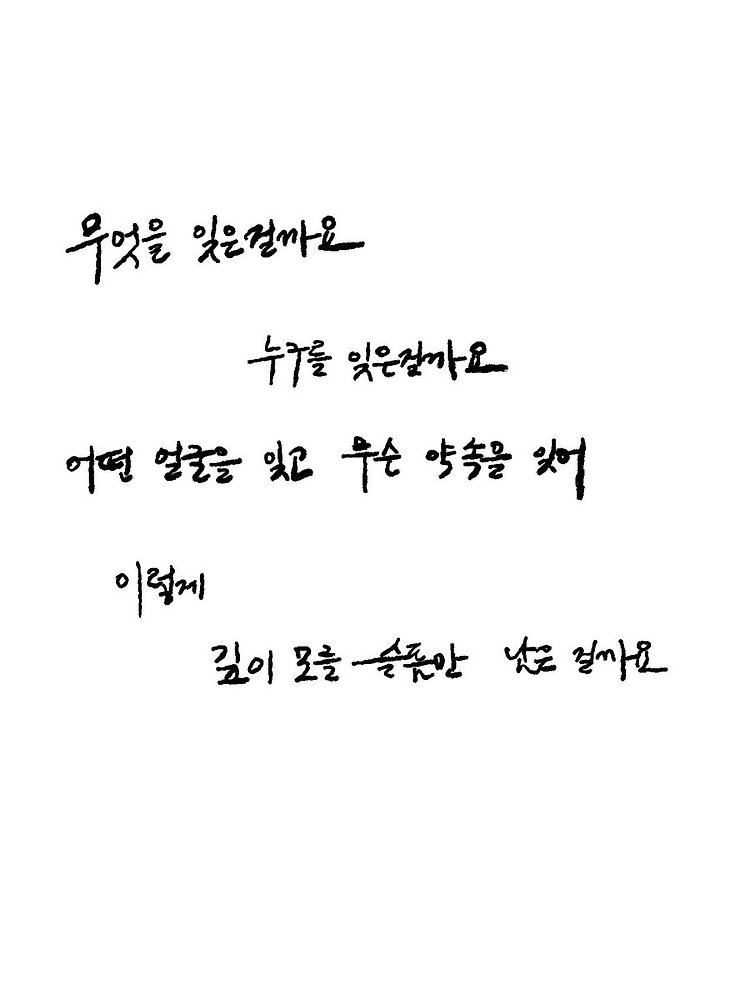 무엇을 잊은걸까요
누구를 잊은걸까요
어떤 얼굴을 잊고 무슨 약속을 잊어
이렇게
깊이 모를 슬픔만 남은 걸까요